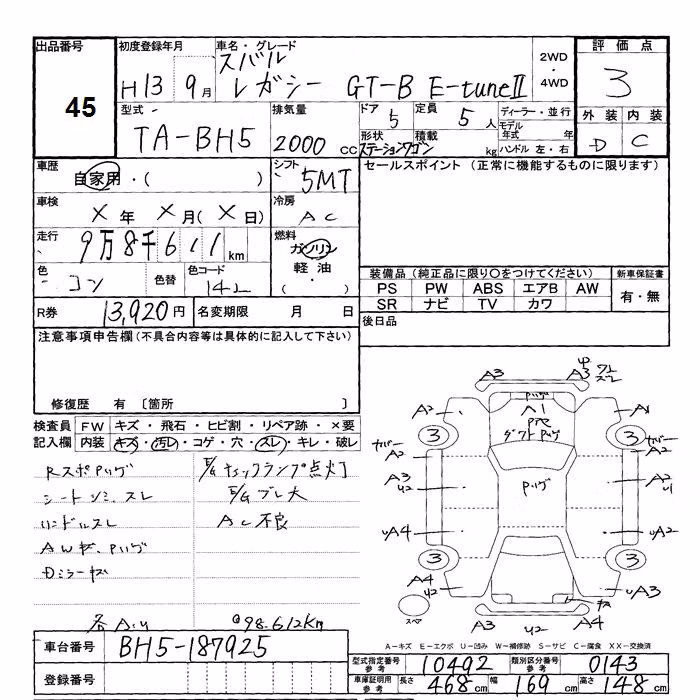 出品番号 初度登録年月 車名・グレード 2WD・4WD 評価点
45
H13年 9月 スバル レガシー GT-B E-tuneⅡ 3
型式 排気量 ドア 5 定員 5人 ディーラー・並行 外装 内装
TA-BH5 2000cc 形状 ステーションワゴン 積載 kg モデル年式 年 ハンドル 左・右 D C
車歴 自家用・( ) シフト 5MT セールスポイント(正常に機能するものに限ります)
車検 X年 X月(X日) 冷房 AC
走行 9万8千611km 燃料 ガソリン
軽油・( )
色 コン 色替 色コード 14L
装備品(純正品に限り○をつけてください) 新車保証書
PS PW ABS エアB AW 有・無
SR ナビ TV カワ
R券 13,920円 名変期限 月 日 後日品
注意事項申告欄(不具合内容等は具体的に記入して下さい)
修復歴 有〔箇所 〕
検査員記入欄 FW キズ・飛石・ヒビ割・リペア跡・×要
内装 キズ・汚レ・コゲ・穴・スレ・キレ・破レ
RスポPリグ E/gチェックランプ点灯
シートシミ、スレ E/gブレ大
ハンドルスレ AC不良
AWキズ、Pリグ
Dミラーキズ
各A.U @98.612km
A3 A3
A2 A1 A1
3 Pリグ 3
カバーA2 ダクトPリグ カバーA2
A3 U2 Pリグ A2 U1
UA4 UA2
3 3
A4 U2 UA3
スペア A3 U2 A4 キズ
A-キズ E-エクボ U-凹み W-補修跡 S-サビ C-腐食 XX-交換済
車台番号 BH5-187925
型式指定番号 参考 10492 類別区分番号 参考 0143
登録番号
車庫証明用 参考 長さ 468cm 幅 169cm 高さ 148cm